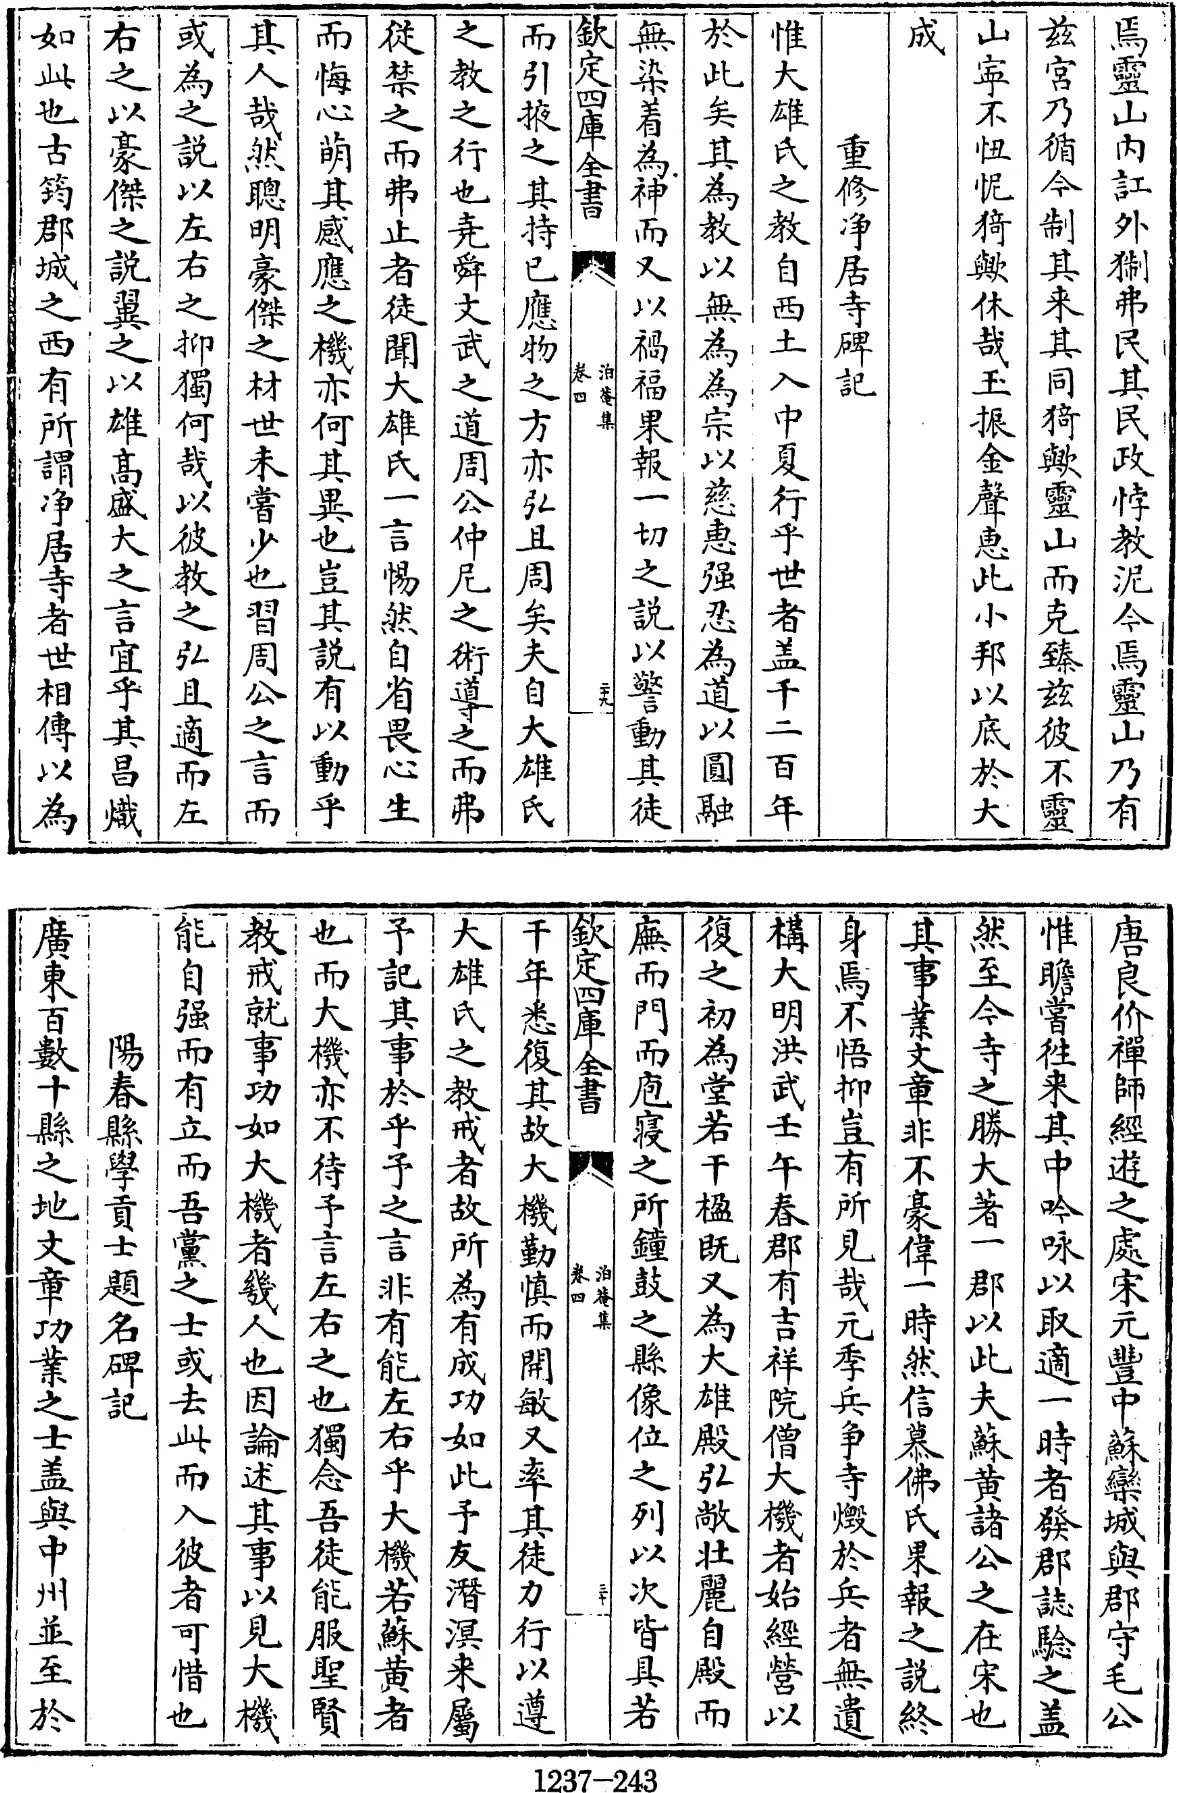 焉靈山内訌外猘弗民其民政悖教泥今焉靈山乃有
兹宫乃循今制其来其同猗歟靈山而克臻兹彼不靈
山寜不忸怩猗歟休哉玉振金聲惠此小邦以底於大
成
重修浄居寺碑記
惟大雄氏之教自西土入中夏行乎世者盖千二百年
於此矣其為教以無為為宗以慈惠强忍為道以圓融
無染着為神而又以禍福果報一切之説以警動其徒
而引掖之其持已應物之方亦弘且周矣夫自大雄氏
欽定四庫全書
泊菴集
卷四
二十九
之教之行也堯舜文武之道周公仲尼之術導之而弗
從禁之而弗止者徒聞大雄氏一言惕然自省畏心生
而悔心萌其感應之機亦何其異也豈其説有以動乎
其人哉然聰明豪傑之材世未嘗少也習周公之言而
或為之説以左右之抑獨何哉以彼教之弘且適而左
右之以豪傑之説翼之以雄髙盛大之言宜乎其昌熾
如此也古筠郡城之西有所謂浄居寺者世相傳以為
唐良价禪師經遊之處宋元豐中蘇欒城與郡守毛公
惟瞻嘗徃来其中吟咏以取適一時者發郡誌騐之盖
然至今寺之勝大著一郡以此夫蘇黄諸公之在宋也
其事業文章非不豪偉一時然信慕佛氏果報之説終
身焉不悟抑豈有所見哉元季兵争寺燬於兵者無遺
構大明洪武壬午春郡有吉祥院僧大機者始經營以
復之初為堂若干楹既又為大雄殿弘敞壮麗自殿而
廡而門而庖寝之所鐘鼓之縣像位之列以次皆具若
欽定四庫全書
泊菴集
卷四
三十
干年悉復其故大機勤慎而開敏又率其徒力行以遵
大雄氏之教戒者故所為有成功如此予友潛溟来屬
予記其事於乎予之言非有能左右乎大機若蘇黄者
也而大機亦不待予言左右之也獨念吾徒能服聖賢
教戒就事功如大機者幾人也因論述其事以見大機
能自强而有立而吾黨之士或去此而入彼者可惜也
陽春縣學貢士題名碑記
廣東百數十縣之地文章功業之士盖與中州並至於
1237-243